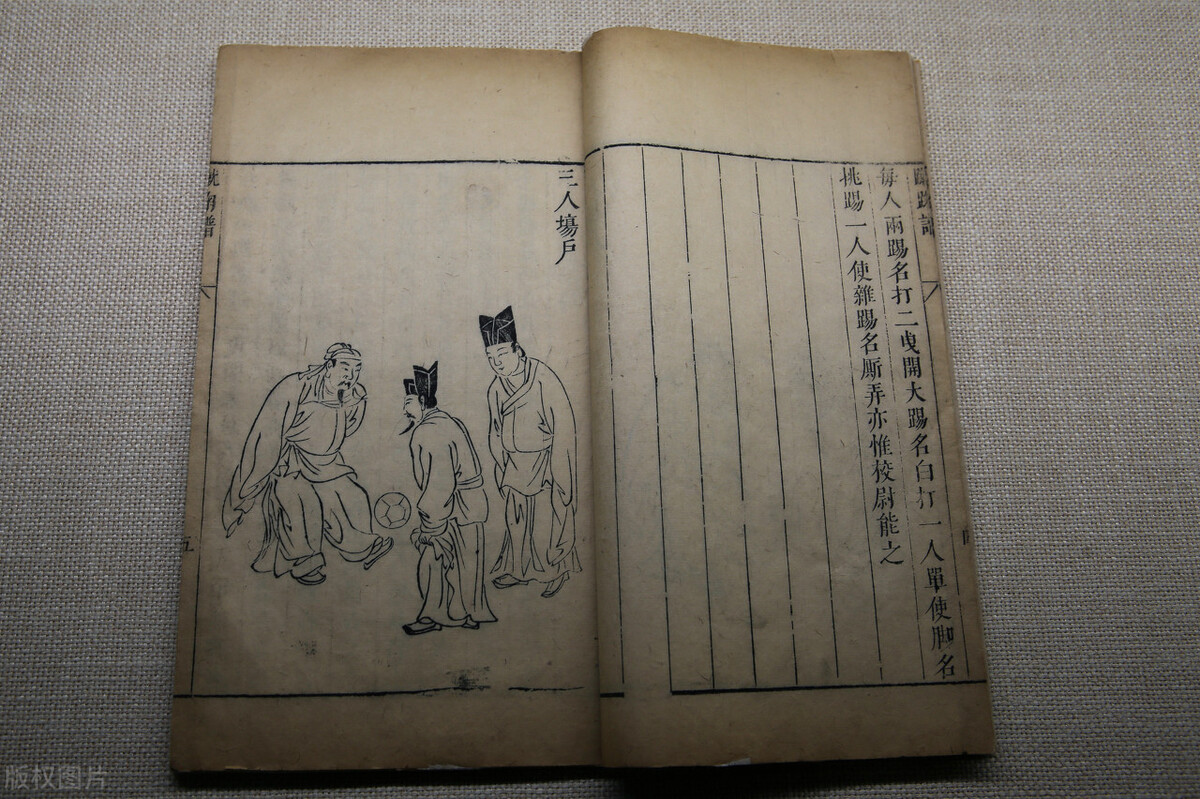 每人兩踢名打二曳開大踢名白打一人單使脚名
挑踢一人使雜踢名厮弄亦惟校尉能之
三人塲戶
五
版权图片